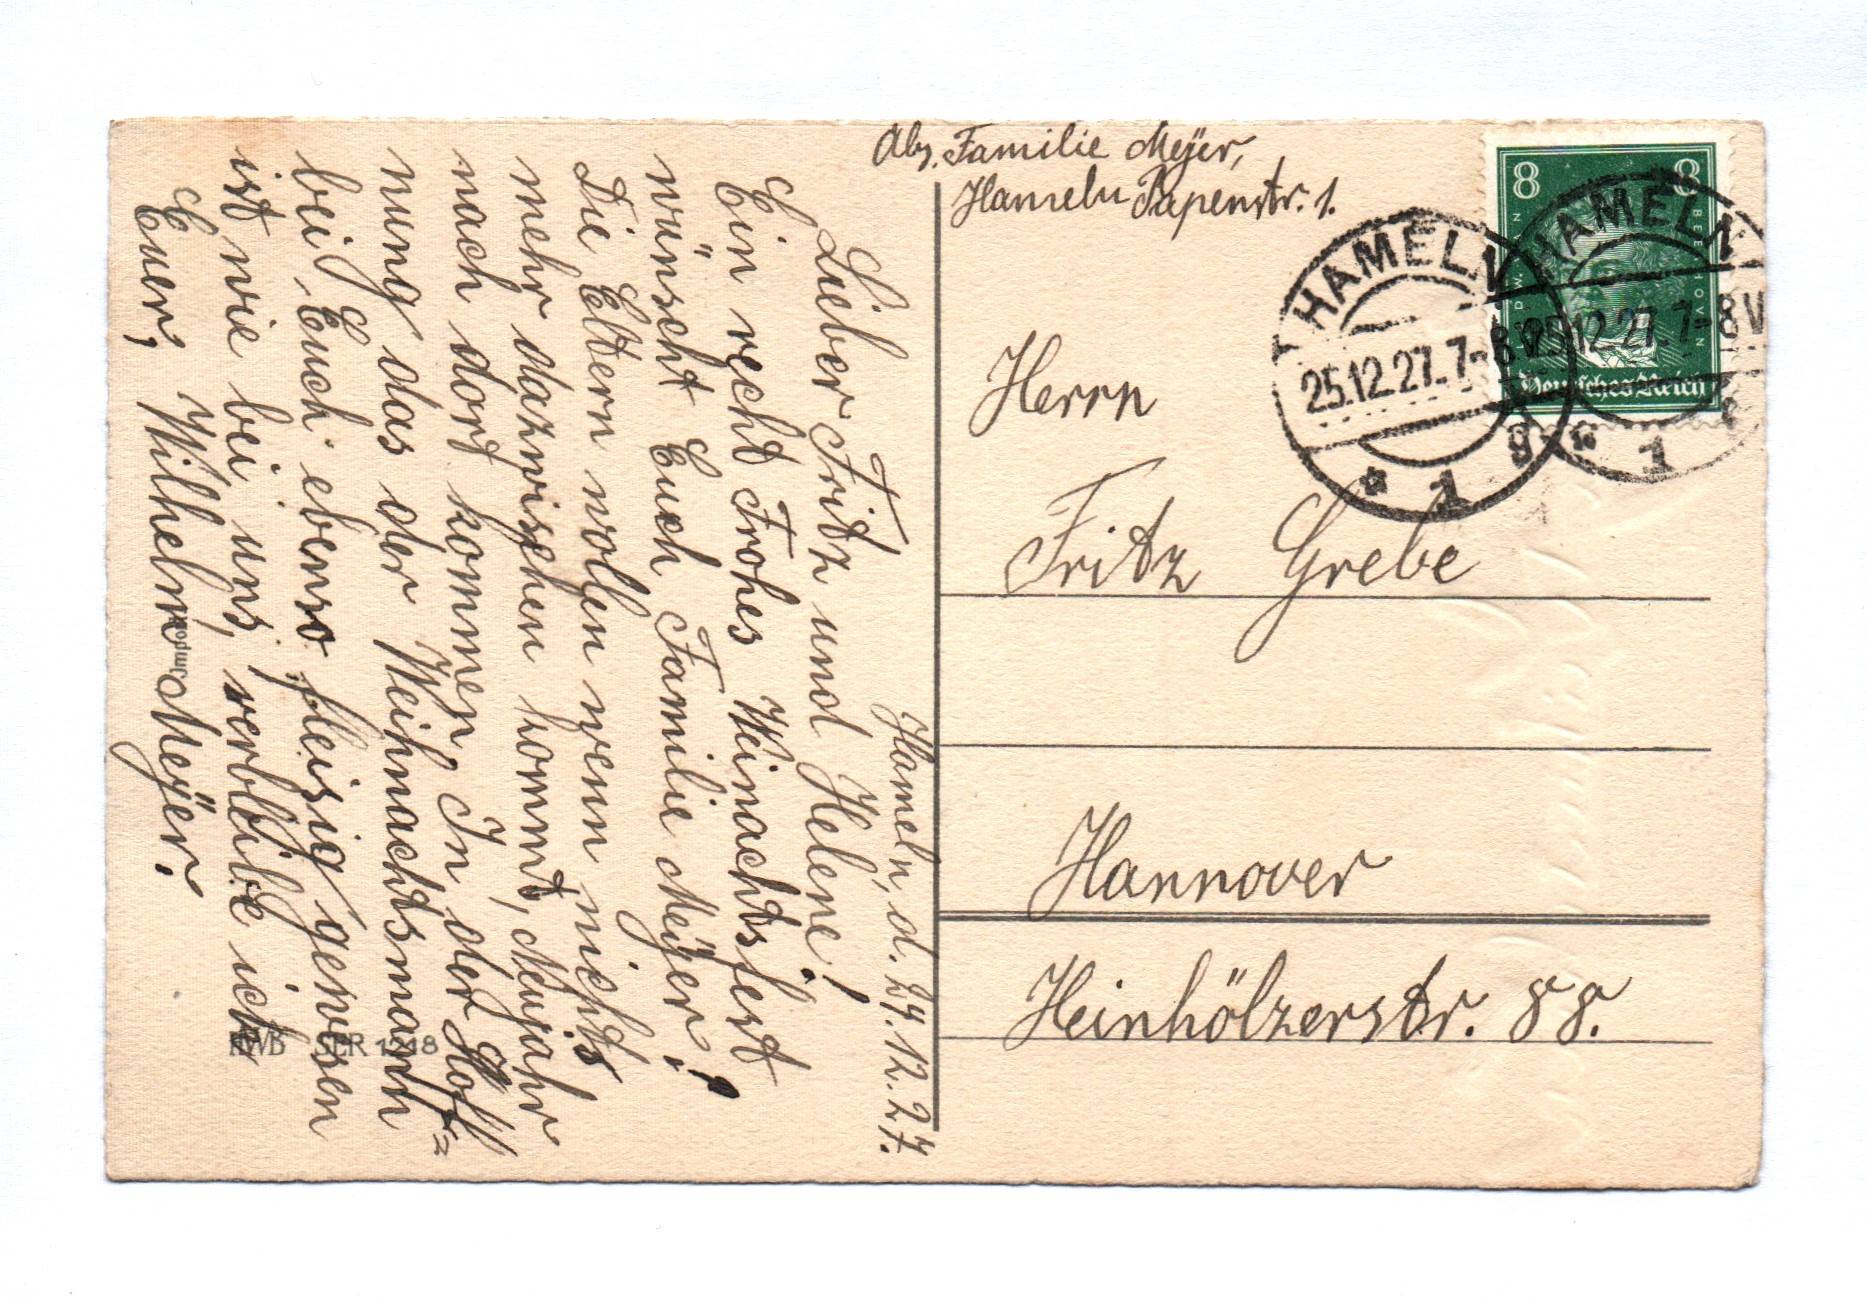 Abs. Familie Meÿer,
Hameln Papenstr. 1.
8 8
BEETHOVEN
Deutsches Reich
HAMELN
25.12.27.7-8V
* 1 g
HAMELN
25.12.27.7-8V
* 1
Herrn
Fritz Grebe
Hannover
Heinhölzerstr. 88.
Hameln, d. 24.12.27.
Lieber Fritz und Helene!
Ein recht Frohes Weinachtsfest
wünscht Euch Familie Meÿer!
Die Eltern wollen wenn nichts
mehr dazwischen kommt, Neujahr
nach dort kommen. In der Hoff=
nung das der Weihnachtsmann
bei Euch ebenso fleisig gewesen
ist wie bei uns, verbleibe ich
Euer, Wilhelm Meÿer.
Import
HWB SER 1218